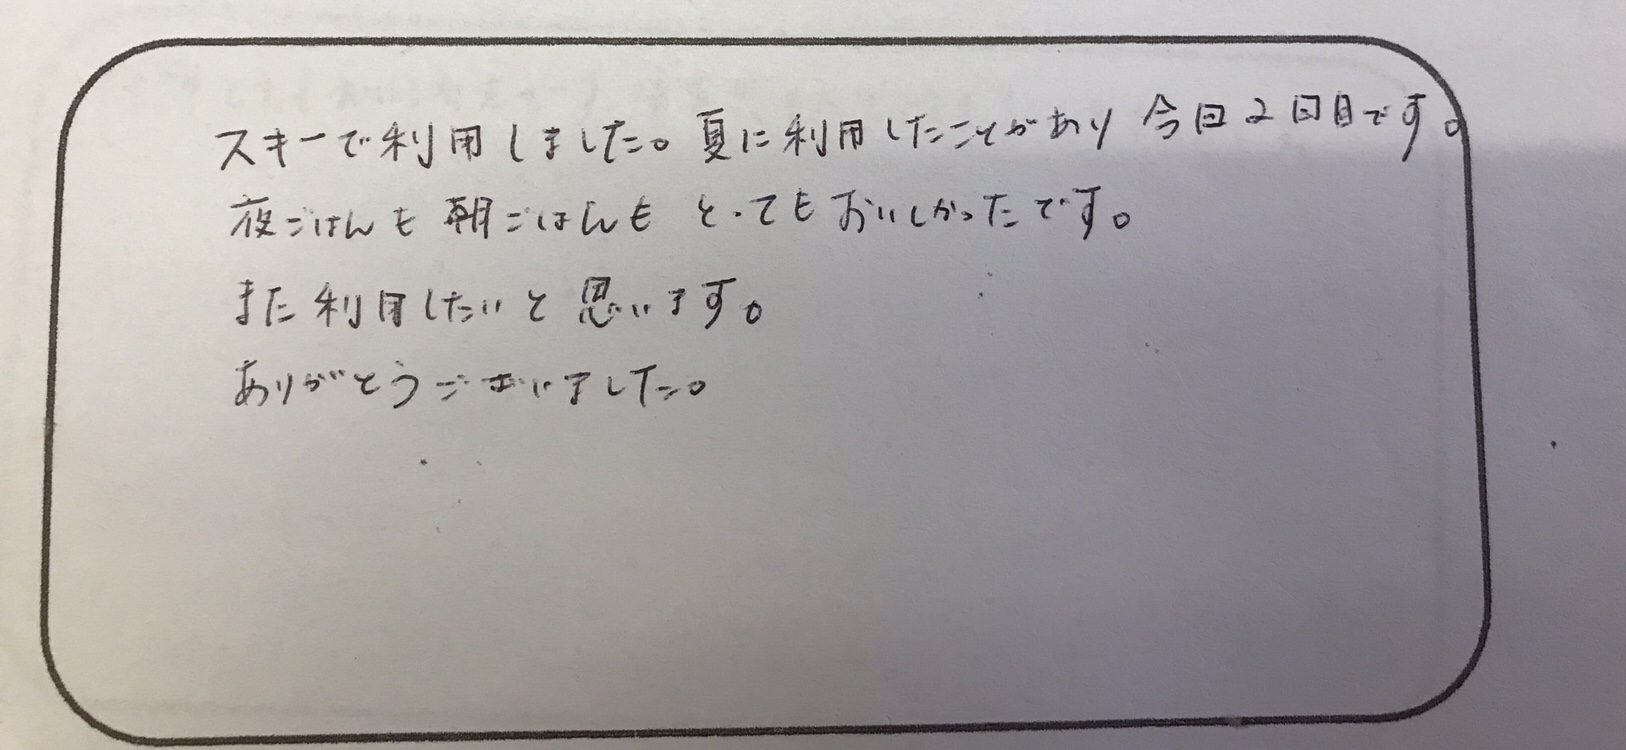 スキーで利用しました。夏に利用したことがあり今回2回目です。
夜ごはんも朝ごはんもとってもおいしかったです。
また利用したいと思います。
ありがとうございました。